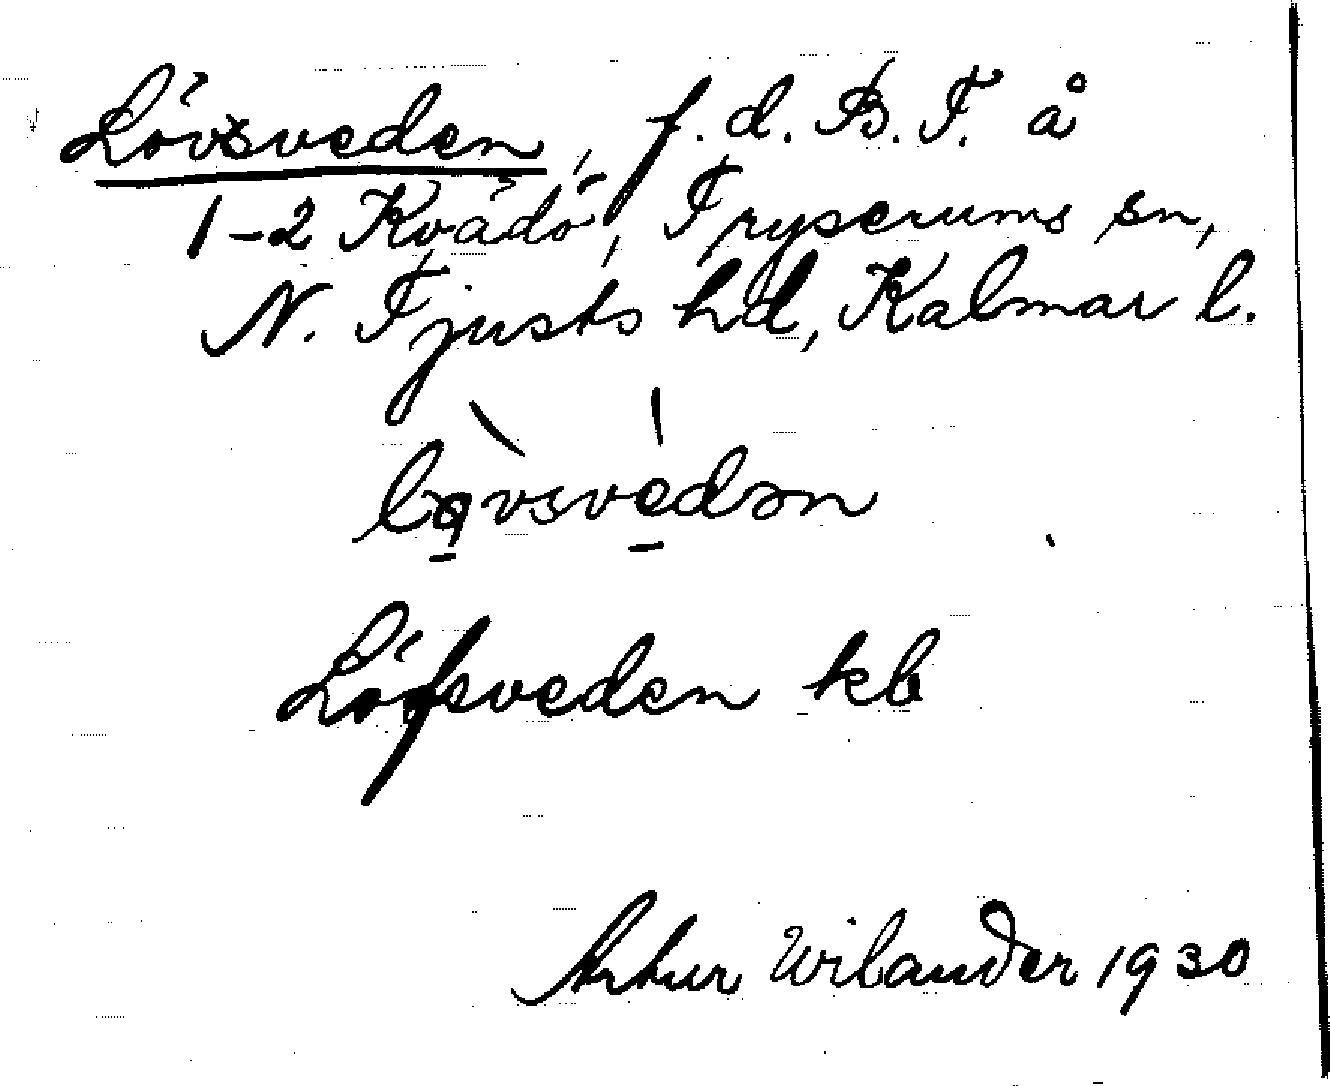 Lövsveden, f. d. B. T. å
1-2 Kvädö, Tryserums sn,
N. Tjusts hd, Kalmar l.
lǫ̀vsvédən
Löfsveden kb
Artur Wilander 1930